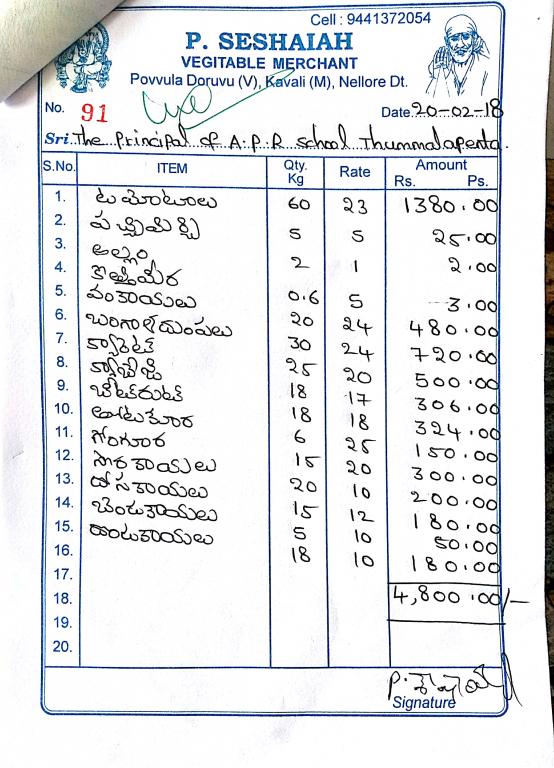 Cell : 9441372054
P. SESHAIAH
VEGITABLE MERCHANT
Povvula Doruvu (V), Kavali (M), Nellore Dt.
No. 91 Date.20-02-18
Sri.The Principal of A.P.R school Thummalapenta.
S.No. ITEM Qty. Kg Rate Amount Rs. Ps.
1. టమోటాలు 60 23 1380.00
2. పచ్చిమిర్చి 5 5 25.00
3. అల్లం 2 1 2.00
4. కొత్తిమీర 0.6 5 3.00
5. వంకాయలు 20 24 480.00
6. బంగాళదుంపలు 30 24 720.00
7. క్యారెట్ 25 20 500.00
8. క్యాబేజి 18 17 306.00
9. బీట్‌రూట్ 18 18 324.00
10. తోటకూర 6 25 150.00
11. గోంగూర 15 20 300.00
12. సొరకాయలు 20 10 200.00
13. దోసకాయలు 15 12 180.00
14. బెండకాయలు 5 10 50.00
15. దొండకాయలు 18 10 180.00
16.
17.
18. 4,800.00/-
19.
20.
Signature